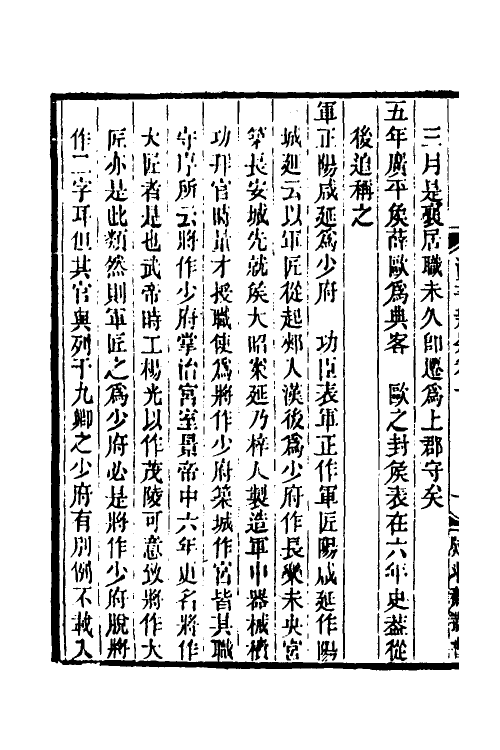 三月是襄居職未久卽遷爲上郡守矣
五年廣平矦薛歐爲典客　歐之封矦表在六年史葢從
後追稱之
軍正陽咸延爲少府　功臣表軍正作軍匠陽咸延作陽
城延云以軍匠從起郟入漢後爲少府作長樂未央宮
築長安城先就矦大昭案延乃梓人製造軍中器械積
功拜官時量才授職使爲將作少府築城作宮皆其職
守序所云將作少府掌治宮室景帝中六年更名將作
大匠者是也武帝時工楊光以作茂陵可意致將作大
匠亦是此類然則軍匠之爲少府必是將作少府脫將
作二字耳但其官與列于九卿之少府有別例不載入